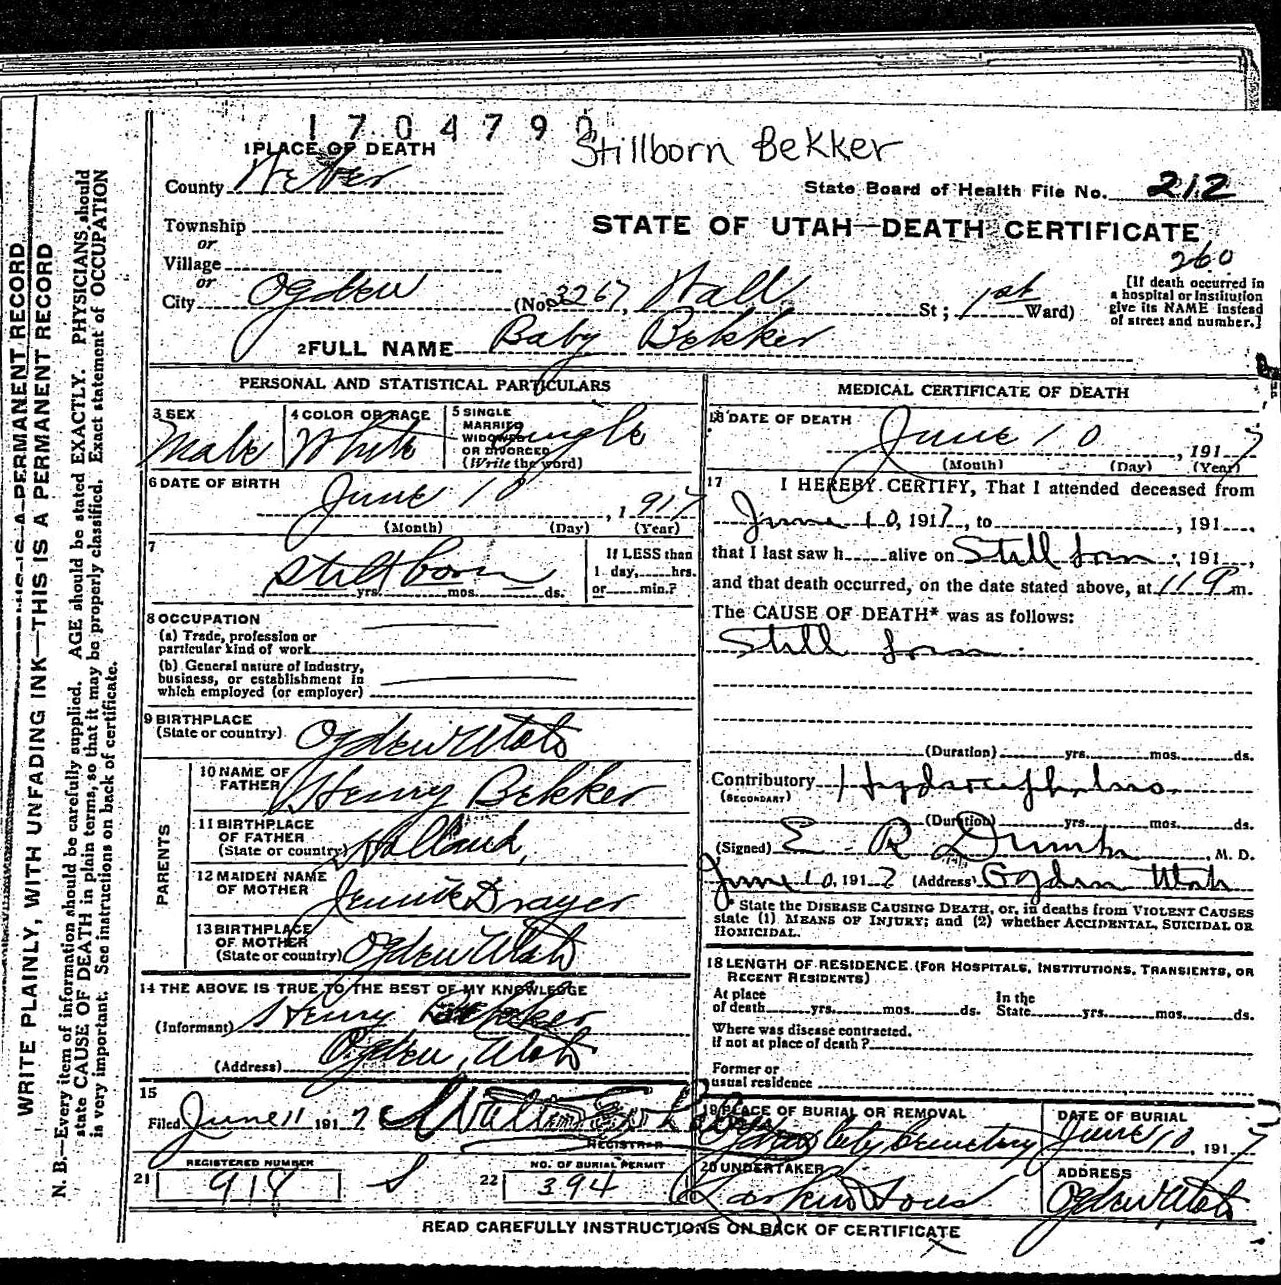 1 7 0 4 7 9 0
Stillborn Bekker
1 PLACE OF DEATH
County Weber
State Board of Health File No. 212
Township
or
Village
or
STATE OF UTAH—DEATH CERTIFICATE
260
City Ogden (No. 3267, Wall St; 1st Ward)
[If death occurred in
a hospital or institution
give its NAME instead
of street and number.]
2 FULL NAME Baby Bekker
PERSONAL AND STATISTICAL PARTICULARS
3 SEX
Male
4 COLOR OR RACE
White
5 SINGLE
MARRIED
WIDOWED
OR DIVORCED
(Write the word)
Single
6 DATE OF BIRTH
June 10, 1917
(Month) (Day) (Year)
7
Stillborn
yrs. mos. ds.
If LESS than
1 day, hrs.
or min.?
8 OCCUPATION
(a) Trade, profession or
particular kind of work
(b) General nature of Industry,
business, or establishment in
which employed (or employer)
9 BIRTHPLACE
(State or country) Ogden Utah
PARENTS
10 NAME OF
FATHER Henry Bekker
11 BIRTHPLACE
OF FATHER
(State or country) Holland,
12 MAIDEN NAME
OF MOTHER Jennie Drayer
13 BIRTHPLACE
OF MOTHER
(State or country) Ogden Utah
14 THE ABOVE IS TRUE TO THE BEST OF MY KNOWLEDGE
(Informant) Henry Bekker
(Address) Ogden, Utah
15
Filed June 11 1917
REGISTRAR
21 REGISTERED NUMBER
918 S
22 NO. OF BURIAL PERMIT
394
MEDICAL CERTIFICATE OF DEATH
16 DATE OF DEATH
June 10, 1917
(Month) (Day) (Year)
17 I HEREBY CERTIFY, That I attended deceased from
June 10, 1917, to , 191 ,
that I last saw h alive on Still born ; 191 ,
and that death occurred, on the date stated above, at 11 P m.
The CAUSE OF DEATH* was as follows:
Still born.
(Duration) yrs. mos. ds.
Contributory Hydrocephalus
(SECONDARY)
(Duration) yrs. mos. ds.
(Signed) E. R. M. D.
June 10, 1917 (Address) Ogden Utah
* State the DISEASE CAUSING DEATH, or, in deaths from VIOLENT CAUSES
state (1) MEANS OF INJURY; and (2) whether ACCIDENTAL, SUICIDAL OR
HOMICIDAL.
18 LENGTH OF RESIDENCE (FOR HOSPITALS, INSTITUTIONS, TRANSIENTS, OR
RECENT RESIDENTS)
At place
of death yrs. mos. ds.
In the
State yrs. mos. ds.
Where was disease contracted.
if not at place of death?
Former or
usual residence
19 PLACE OF BURIAL OR REMOVAL
Ogden City Cemetery
DATE OF BURIAL
June 10, 1917
20 UNDERTAKER
Larkin Sons
ADDRESS
Ogden Utah
READ CAREFULLY INSTRUCTIONS ON BACK OF CERTIFICATE
WRITE PLAINLY, WITH UNFADING INK—THIS IS A PERMANENT RECORD
THIS IS A PERMANENT RECORD
N. B.—Every item of information should be carefully supplied. AGE should be stated EXACTLY. PHYSICIANS should
state CAUSE OF DEATH in plain terms, so that it may be properly classified. Exact statement of OCCUPATION
is very important. See instructions on back of certificate.